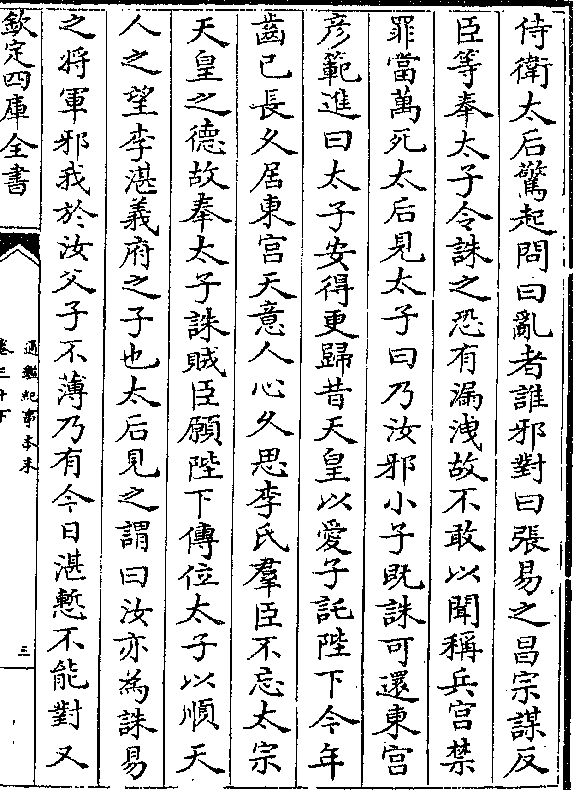 侍衛太后驚起問曰亂者誰邪對曰張易之昌宗謀反
臣等奉太子令誅之恐有漏洩故不敢以聞稱兵宮禁
罪當萬死太后見太子曰乃汝邪小子既誅可還東宮
彦範進曰太子安得更歸昔天皇以愛子託陛下今年
齒已長久居東宮天意人心久思李氏羣臣不忘太宗
天皇之德故奉太子誅賊臣願陛下傳位太子以順天
人之望李湛義府之子也太后見之謂曰汝亦為誅易
之將軍邪我於汝父子不薄乃有今日湛慙不能對又
欽定四庫全書
通鑑紀事本末
卷三十下
三